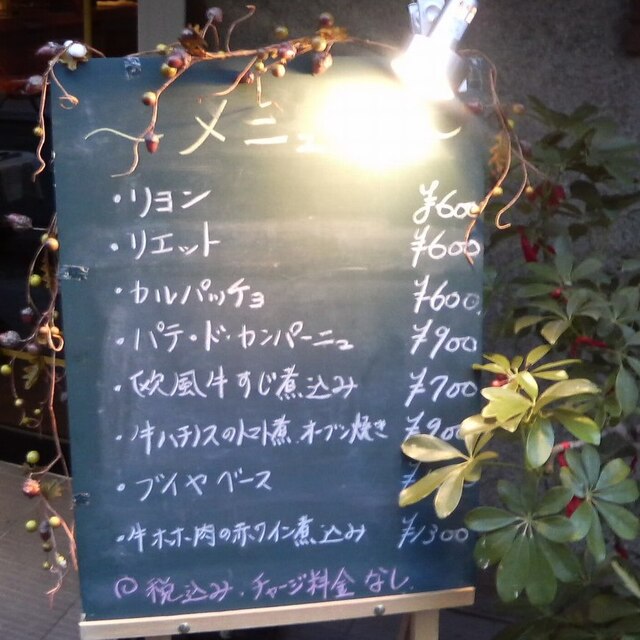 メニュー
・リヨン ¥600
・リエット ¥600
・カルパッチョ ¥600
・パテ・ド・カンパーニュ ¥900
・欧風牛すじ煮込み ¥700
・牛ハチノスのトマト煮 オーブン焼き ¥900
・ブイヤベース
・牛ホホ肉の赤ワイン煮込み ¥1300
税込み・チャージ料金なし